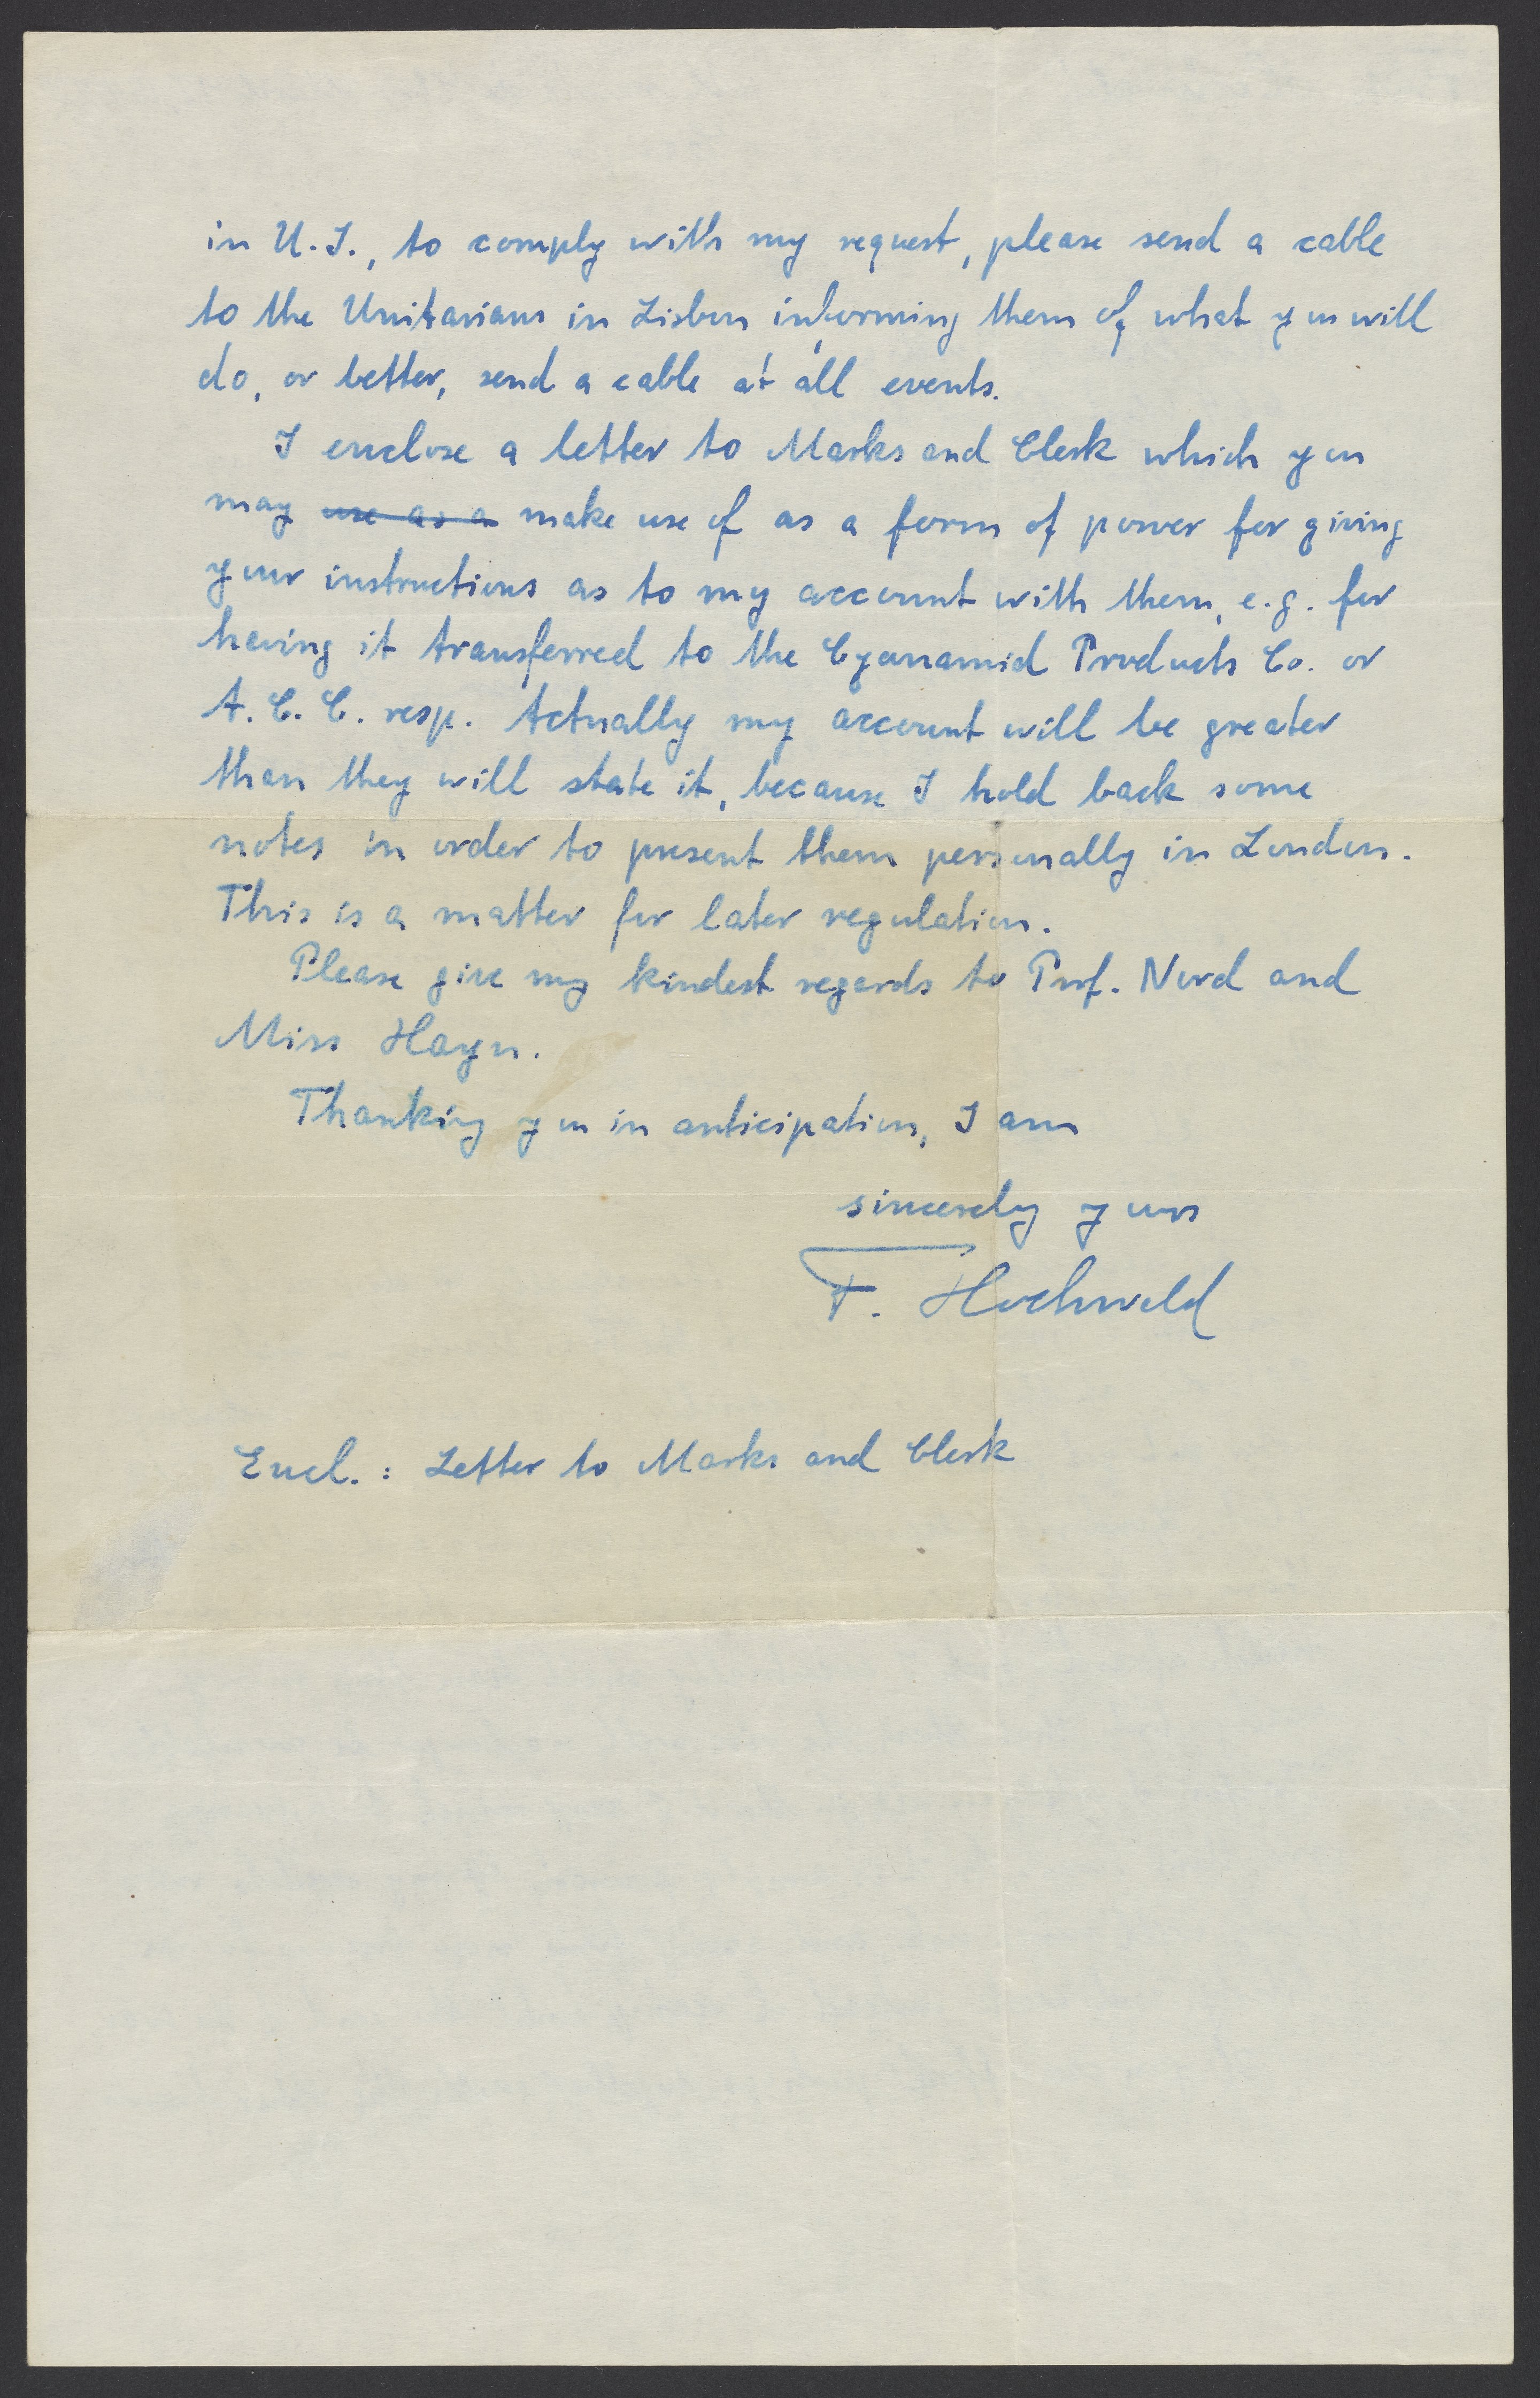 in U.S., to comply with my request, please send a cable
to the Unitarians in Lisbon informing them of what you will
do, or better, send a cable at all events.
I enclose a letter to Marks and Clerk which you
may use as a make use of as a form of power for giving
your instructions as to my account with them, e.g. for
having it transferred to the Cyanamid Products Co. or
A. C. C. resp. Actually my account will be greater
than they will state it, because I hold back some
notes in order to present them personally in London.
This is a matter for later regulation.
Please give my kindest regards to Prof. Nord and
Miss Hayn.
Thanking you in anticipation, I am
sincerely yours
F. Hochwald
Encl. : Letter to Marks and Clerk